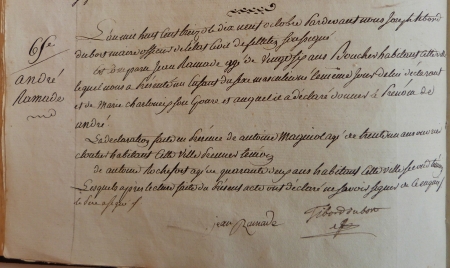 65e
andré
Ramade
L'an mil huit cent treize le dix neuf octobre Pardevant nous Joseph
dubois maire officier de l'etat civil de felletin
Est comparu Jean Ramade agé de vingt six ans Boucher habitant cette ville
lequel nous a Présenté un Enfant du sexe masculin né le même jour de lui déclarant
et de Marie son Epouse et auquel il a déclaré donner le Prénom de
andré
La declaration faite en Présence de antoine agé de trente un ans
habitant cette ville Premier temoin
de antoine Rochefort agé de quarante ans habitant cette ville second temoin
Lesquels après lecture faite du Présent acte ont déclaré ne savoir signer de ce enquis
le Père a signé
jean Ramade